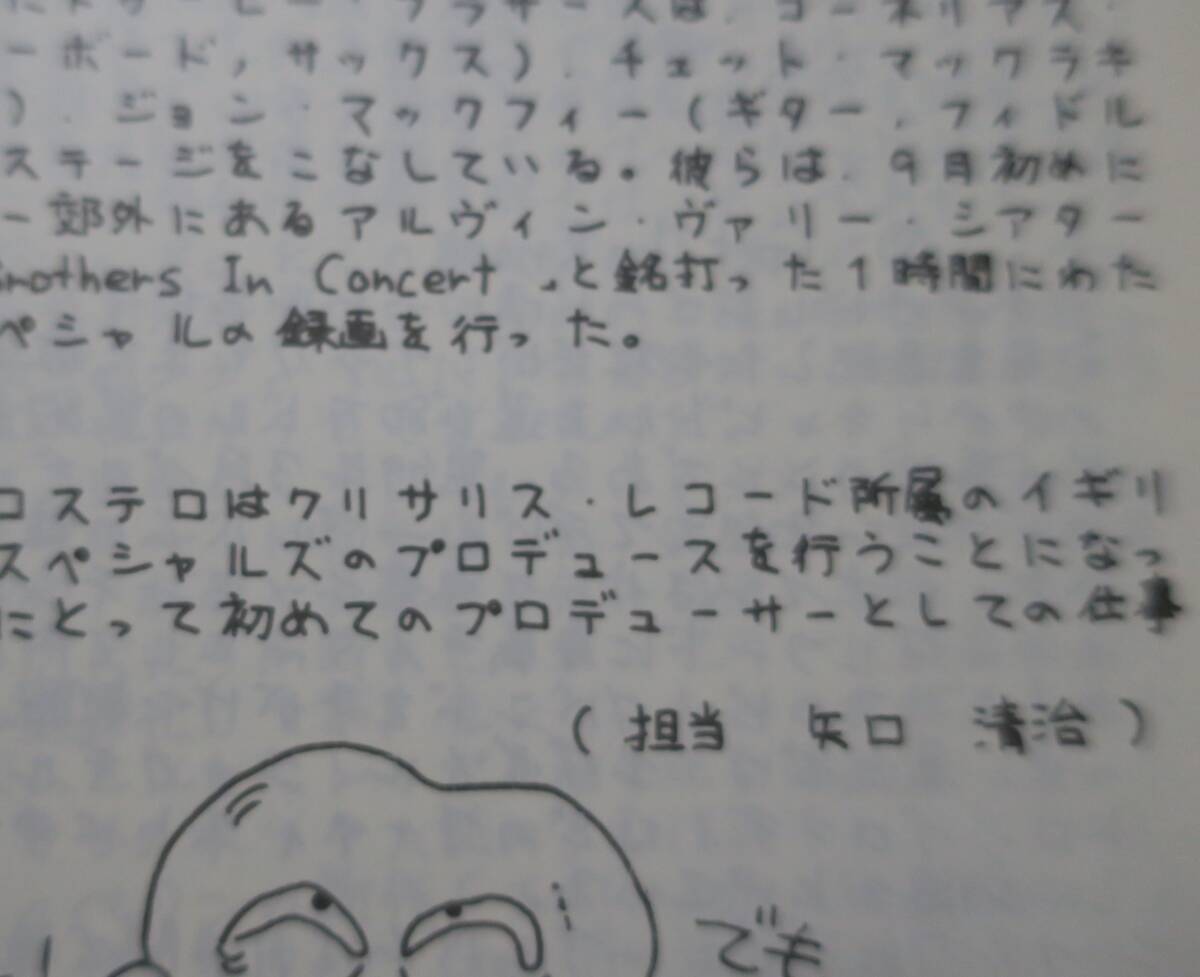 ーボード,サックス).チェット・マックラキ
).ジョン・マックフィー(ギター.フィドル
ステージをこなしている。彼らは.9月初めに
ー郊外にあるアルヴィン・ヴァリー・シアター
Brothers In Concert 〟と銘打った1時間にわた
ペシャルの録画を行った。
コステロはクリサリス・レコード所属のイギリ
スペシャルズのプロデュースを行うことになっ
にとって初めてのプロデューサーとしての仕事
(担当 矢口 清治)
でも